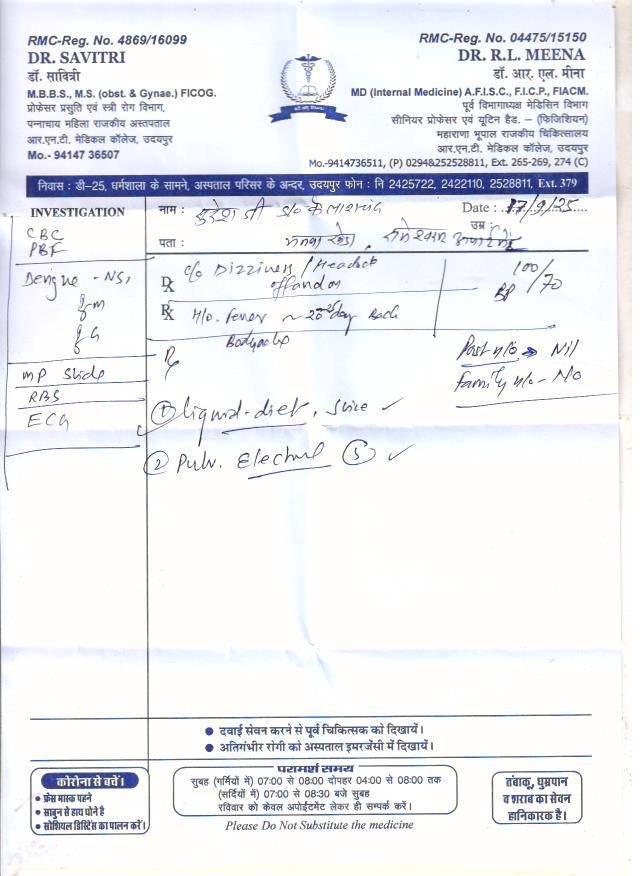 RMC-Reg. No. 4869/16099
DR. SAVITRI
डॉ. सावित्री
M.B.B.S., M.S. (obst. & Gynae.) FICOG.
प्रोफेसर प्रसुति एवं स्त्री रोग विभाग,
पन्नाधाय महिला राजकीय अस्तपताल
आर.एन.टी. मेडिकल कॉलेज, उदयपुर
Mo.- 94147 36507
RMC-Reg. No. 04475/15150
DR. R.L. MEENA
डॉ. आर. एल. मीना
MD (Internal Medicine) A.F.I.S.C., F.I.C.P., FIACM.
पूर्व विभागाध्यक्ष मेडिसिन विभाग
सीनियर प्रोफेसर एवं यूटिन हैड. – (फिजिशियन)
महाराणा भूपाल राजकीय चिकित्सालय
आर.एन.टी. मेडिकल कॉलेज, उदयपुर
Mo.-9414736511, (P) 0294&252528811, Ext. 265-269, 274 (C)
निवास : डी-25, धर्मशाला के सामने, अस्पताल परिसर के अन्दर, उदयपुर फोन : नि 2425722, 2422110, 2528811, Ext. 379
INVESTIGATION
CBC
PBF
Dengue - NS1
MP Slide
RBS
ECG
नाम :
Date : 17/9/25
उम्र :
पता :
c/o Dizziness / Headek
BP 100/70
H/o. Fever ~ day Back
Past H/o → Nil
Family H/o - No
① liquid-diet,
② Pulv. Electral ⑤ ✓
दवाई सेवन करने से पूर्व चिकित्सक को दिखायें।
अतिगंभीर रोगी को अस्पताल इमरजेंसी में दिखायें।
कोरोना से बचें।
फ्रेस मास्क पहने
साबुन से हाथ धोने है
सोशियल डिस्टेंस का पालन करें।
परामर्श समय
सुबह (गर्मियों में) 07:00 से 08:00 दोपहर 04:00 से 08:00 तक
(सर्दियों में) 07:00 से 08:30 बजे सुबह
रविवार को केवल अपोईंटमेंट लेकर ही सम्पर्क करें।
Please Do Not Substitute the medicine
तंबाकू, धुम्रपान
व शराब का सेवन
हानिकारक है।